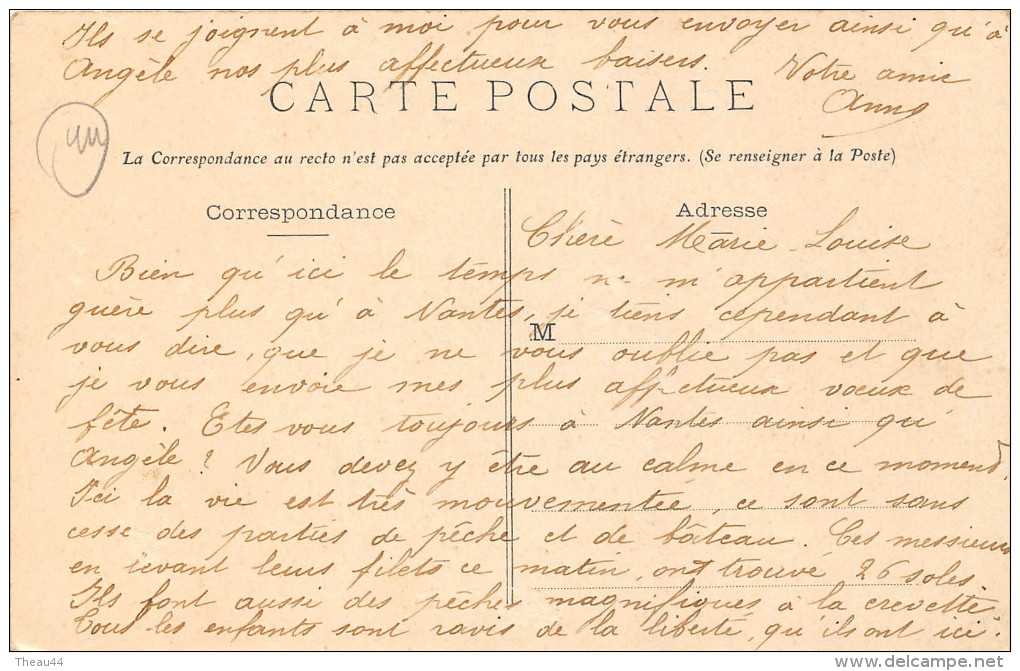 Ils se joignent à moi pour vous envoyer ainsi qu'à
Angèle nos plus affectueux baisers. Votre amie
Anna
CARTE POSTALE
La Correspondance au recto n'est pas acceptée par tous les pays étrangers. (Se renseigner à la Poste)
Correspondance
Adresse
Chère Marie Louise
Bien qu'ici le temps ne m'appartient
guère plus qu'à Nantes, je tiens cependant à
M
vous dire, que je ne vous oublie pas et que
je vous envoie mes plus affectueux vœux de
fête. Etes vous toujours à Nantes ainsi qu'
Angèle? Vous devez y être au calme en ce moment,
Ici la vie est très mouvementée, ce sont sans
cesse des parties de pêche et de bâteau. Ces messieurs
en levant leurs filets ce matin, ont trouvé 26 soles.
Ils font aussi des pêches magnifiques à la crevette
Tous les enfants sont ravis de la liberté, qu'ils ont ici.
Theau44
delcampe.net